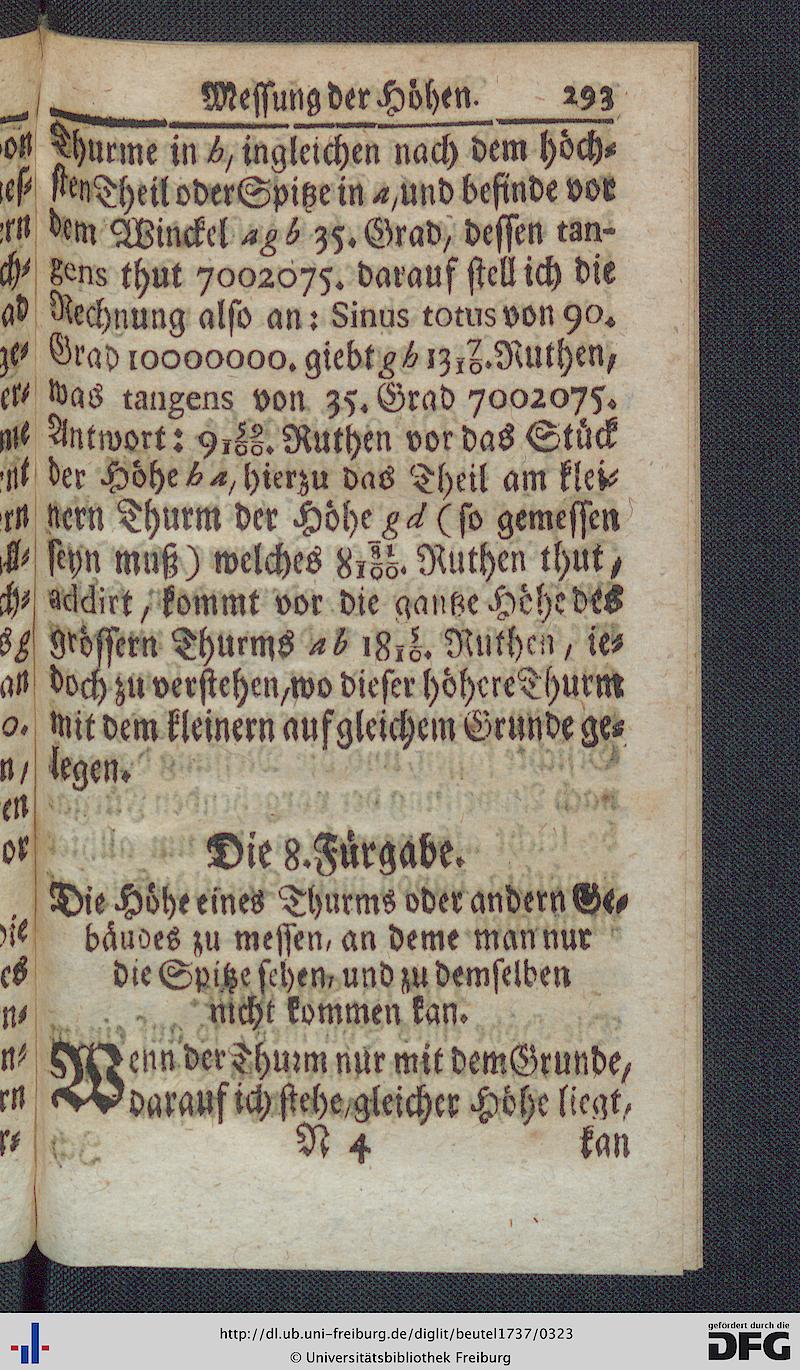 Messung der Höhen. 293
Thurme in b, ingleichen nach dem höch-
sten Theil oder Spitze in a, und befinde vor
dem Winckel a g b 35. Grad, dessen tan-
gens thut 7002075. darauf stell ich die
Rechnung also an: Sinus totus von 90.
Grad 10000000. giebt g b 13 7/10. Ruthen,
was tangens von 35. Grad 7002075.
Antwort: 9 59/100. Ruthen vor das Stück
der Höhe b a, hierzu das Theil am klei-
nern Thurm der Höhe g d (so gemessen
seyn muß) welches 8 91/100. Ruthen thut,
addirt, kommt vor die gantze Höhe des
grössern Thurms a b 18 5/10. Ruthen, ie-
doch zu verstehen, wo dieser höhere Thurm
mit dem kleinern auf gleichem Grunde ge-
legen.
Die 8. Fürgabe.
Die Höhe eines Thurms oder andern Ge-
bäudes zu messen, an deme man nur
die Spitze sehen, und zu demselben
nicht kommen kan.
Wenn der Thurm nur mit dem Grunde,
darauf ich stehe, gleicher Höhe liegt,
N 4 kan
http://dl.ub.uni-freiburg.de/diglit/beutel1737/0323
© Universitätsbibliothek Freiburg
gefördert durch die
DFG